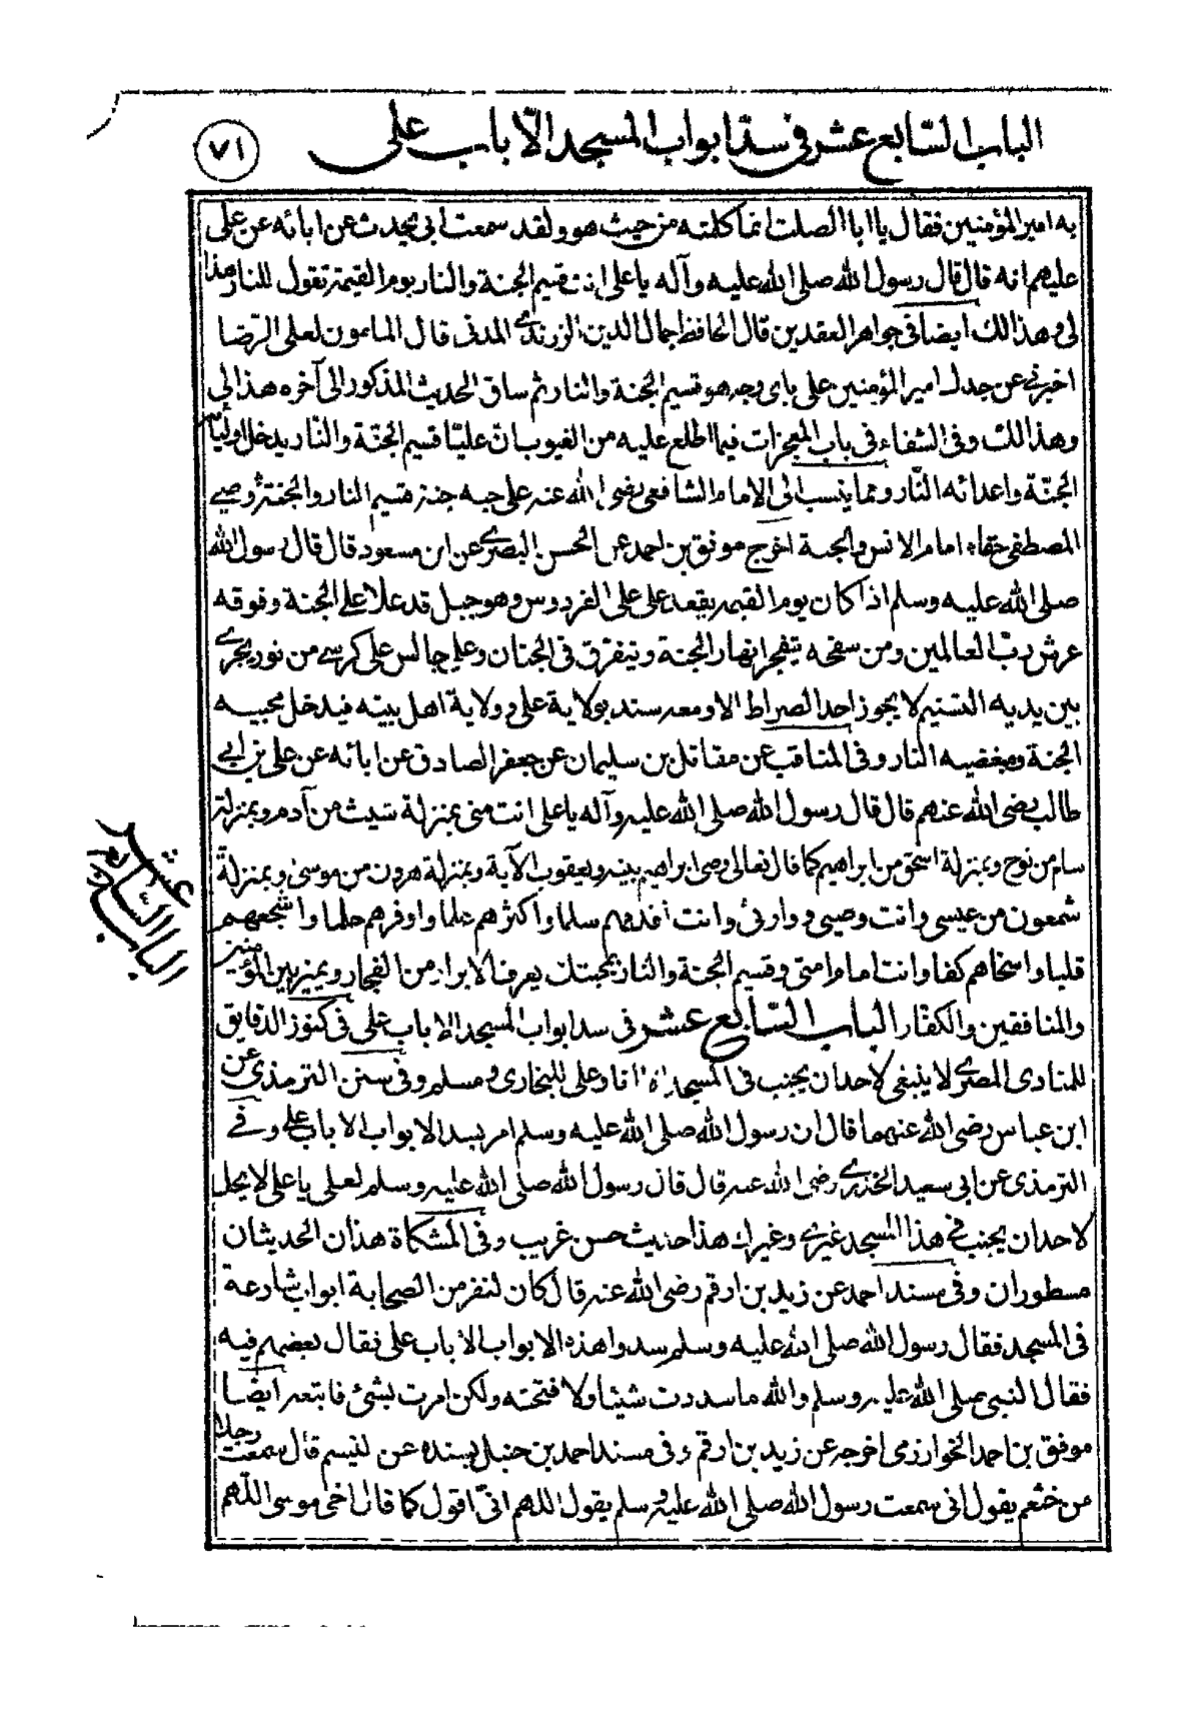 الباب السّابع عشر في سدّ ابواب المسجد الّا باب على
٧١
به امير المؤمنين فقال يا ابا الصلت انما كلمته من حيث هو ولقد سمعت ابى يحدث عن ابائه عن على
عليهم انه قال قال رسول الله صلى الله عليه وآله يا على انت قسيم الجنة والنار يوم القيمة تقول للنار هذا
لى وهذا لك ايضا في جواهر العقدين قال الحافظ جمال الدين الزرندى المدنى قال المامون لعلى الرّضا
اخبرنى عن جدك امير المؤمنين على باى وجه هو قسيم الجنة والنار ثم ساق الحديث المذكور الى آخره هذا لي
وهذا لك وفى الشفاء في باب المعجزات فيما اطلع عليه من الغيوب ان عليّا قسيم الجنّة والنّار يدخل اوليائه
الجنّة واعدائه النّار ومما ينسب الى الامام الشافعى رضى الله عنه على حبه جنة قسيم النار والجنة وصيى
المصطفى حقا امام الانس والجنة اخرج موفق بن احمد عن الحسن البصرى عن ابن مسعود قال قال رسول الله
صلى الله عليه وسلم اذا كان يوم القيمة يقعد على على الفردوس وهو جبل قد علا على الجنة وفوقه
عرش ربّ العالمين ومن سفحه يتفجر انهار الجنة ويتفرق في الجنان وعلى جالس على كرسى من نور يجرى
بين يديه التسنيم لا يجوز احد الصراط الا ومعه سند بولاية على وولاية اهل بيته فيدخل محبيه
الجنة ومبغضيه النار وفى المناقب عن مقاتل بن سليمان عن جعفر الصادق عن ابائه عن على بن ابي
طالب رضى الله عنهم قال قال رسول الله صلى الله عليه وآله يا على انت منى بمنزلة شيث من آدم وبمنزلة
سام من نوح وبمنزلة اسحق من ابراهيم كما قال تعالى وصى ابراهيم بنيه ويعقوب الآية وبمنزلة هرون من موسى وبمنزلة
شمعون من عيسى وانت وصيى ووارثى وانت اقدمهم سلما واكثرهم علما واوفرهم حلما واشجعهم
قلبا واسخاهم كفا وانت امام امتى وقسيم الجنة والنار بمحبتك يعرف الابرار من الفجار ويميز بين المؤمنين
والمنافقين والكفار الباب السّابع عشر في سد ابواب المسجد الا باب على في كنوز الدقايق
للمنادى المصرى لا ينبغى لاحد ان يجنب في المسجد الا انا وعلى للبخارى ومسلم وفى سنن الترمذى عن
ابن عباس رضى الله عنهما قال ان رسول الله صلى الله عليه وسلم امر بسد الابواب الا باب على وفي
الترمذى عن ابي سعيد الخدرى رضى الله عنه قال قال رسول الله صلى الله عليه وسلم لعلى يا على لا يحل
لاحد ان يجنب في هذا المسجد غيرى وغيرك هذا حديث حسن غريب وفى المشكاة هذان الحديثان
مسطوران وفى مسند احمد عن زيد بن ارقم رضى الله عنه قال كان لنفر من الصحابة ابواب شارعة
فى المسجد فقال رسول الله صلى الله عليه وسلم سدوا هذه الابواب الا باب على فقال بعضهم فيه
فقال النبى صلى الله عليه وسلم والله ما سددت شيئا ولا فتحته ولكن امرت بشئ فاتبعته ايضا
موفق بن احمد الخوارزمى اخرجه عن زيد بن ارقم وفى مسند احمد بن حنبل بسنده عن قال سمعت رجلا
من خثعم يقول انى سمعت رسول الله صلى الله عليه وسلم يقول اللهم انىّ اقول كما قال اخى موسى اللّهم
الباب السّابع عشر